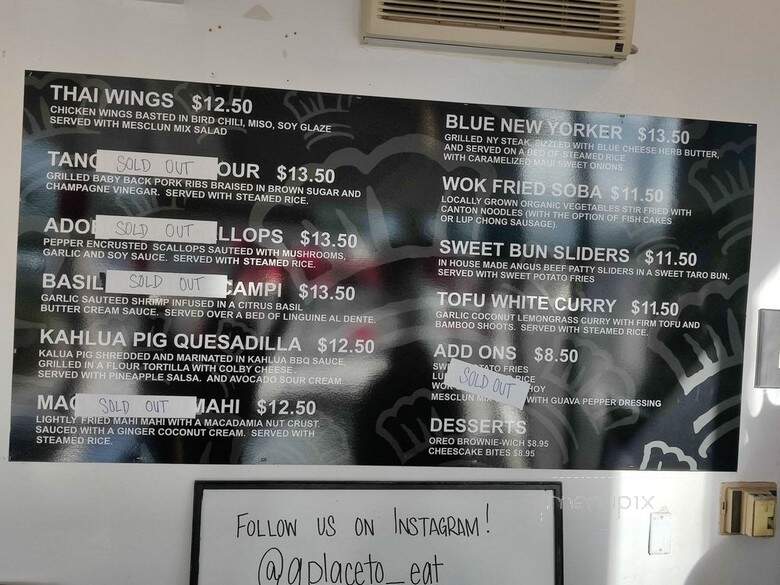 THAI WINGS $12.50
CHICKEN WINGS BASTED IN BIRD CHILI, MISO, SOY GLAZE
SERVED WITH MESCLUN MIX SALAD
TANG SOLD OUT OUR $13.50
GRILLED BABY BACK PORK RIBS BRAISED IN BROWN SUGAR AND
CHAMPAGNE VINEGAR. SERVED WITH STEAMED RICE.
ADO SOLD OUT LLOPS $13.50
PEPPER ENCRUSTED SCALLOPS SAUTEED WITH MUSHROOMS,
GARLIC AND SOY SAUCE. SERVED WITH STEAMED RICE.
BASIL SOLD OUT CAMPI $13.50
GARLIC SAUTEED SHRIMP INFUSED IN A CITRUS BASIL
BUTTER CREAM SAUCE. SERVED OVER A BED OF LINGUINE AL DENTE.
KAHLUA PIG QUESADILLA $12.50
KALUA PIG SHREDDED AND MARINATED IN KAHLUA BBQ SAUCE
GRILLED IN A FLOUR TORTILLA WITH COLBY CHEESE.
SERVED WITH PINEAPPLE SALSA. AND AVOCADO SOUR CREAM
MAC SOLD OUT MAHI $12.50
LIGHTLY FRIED MAHI MAHI WITH A MACADAMIA NUT CRUST.
SAUCED WITH A GINGER COCONUT CREAM. SERVED WITH
STEAMED RICE.
BLUE NEW YORKER $13.50
GRILLED NY STEAK, DRIZZLED WITH BLUE CHEESE HERB BUTTER,
AND SERVED ON A BED OF STEAMED RICE
WITH CARAMELIZED MAUI SWEET ONIONS
WOK FRIED SOBA $11.50
LOCALLY GROWN ORGANIC VEGETABLES STIR FRIED WITH
CANTON NOODLES (WITH THE OPTION OF FISH CAKES
OR LUP CHONG SAUSAGE).
SWEET BUN SLIDERS $11.50
IN HOUSE MADE ANGUS BEEF PATTY SLIDERS IN A SWEET TARO BUN.
SERVED WITH SWEET POTATO FRIES
TOFU WHITE CURRY $11.50
GARLIC COCONUT LEMONGRASS CURRY WITH FIRM TOFU AND
BAMBOO SHOOTS. SERVED WITH STEAMED RICE.
ADD ONS $8.50
SW TATO FRIES
LU RICE
WOK SOLD OUT HOY
MESCLUN MIX WITH GUAVA PEPPER DRESSING
DESSERTS
OREO BROWNIE-WICH $8.95
CHEESCAKE BITES $8.95
menupix
FOLLOW US ON INSTAGRAM!
@aplaceto_eat